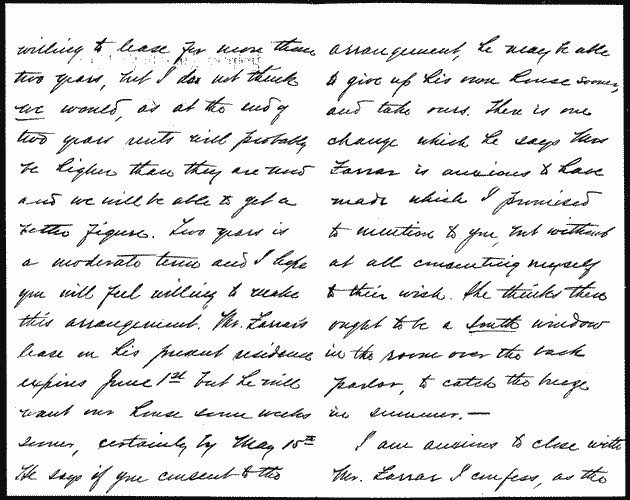 willing to lease for more than
two years, but I do not think
we would, as at the end of
two years rents will probably
be higher than they are now
and we will be able to get a
better figure. Two years is
a moderate term and I hope
you will feel willing to make
this arrangement. Mr. Farrar's
lease on his present residence
expires June 1st but he will
want our house some weeks
sooner, certainly by May 15th
He says if you consent to the
arrangement, he may be able
to give up his own house sooner,
and take ours. There is one
change which he says Mrs
Farrar is anxious to have
made which I promised
to mention to you, but without
at all committing myself
to their wish. She thinks there
ought to be a south window
in the room over the back
parlor, to catch the breeze
in summer.—
I am anxious to close with
Mr. Farrar I confess, as the